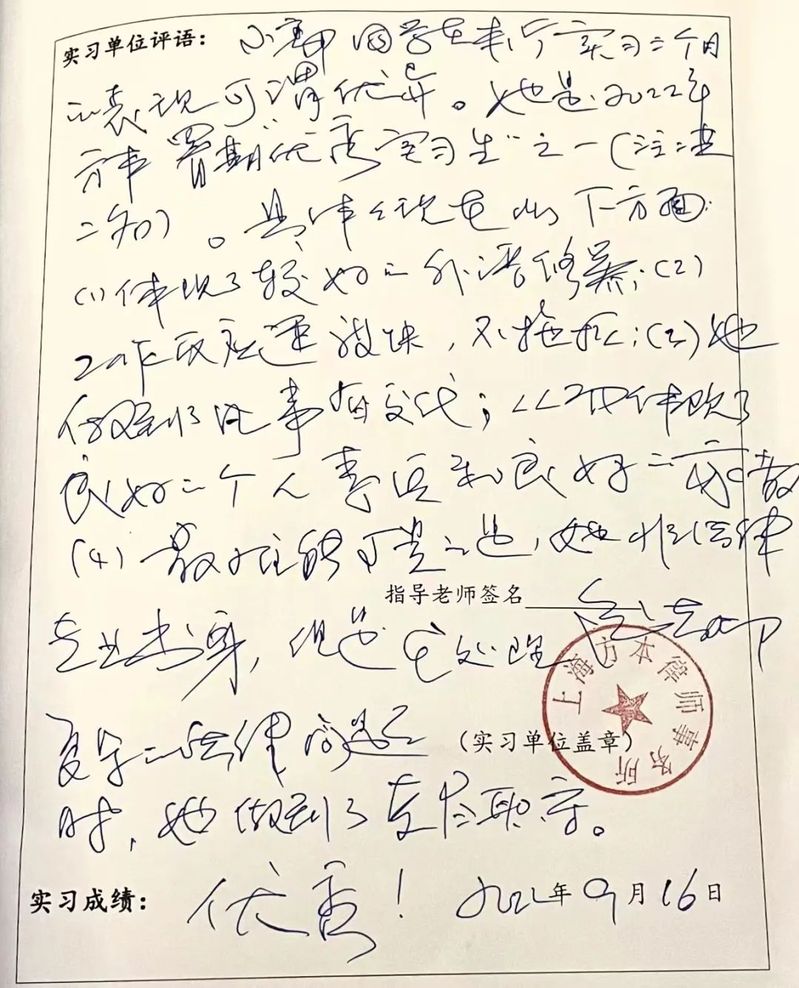 实习单位评语：
同学在本所实习二个月
的表现可谓优异。她是2022年
方本暑期“优秀实习生”之一（注：
）。具体体现在以下方面：
(1)体现了较好的外语修养；(2)
工作反应速度快，不拖拉；(3)她
做到了凡事有交代；体现了
良好的个人素质和良好的家教
(4)最难能可贵的是，她非法律
专业出身，但是在处理
指导老师签名
复杂的法律问题
（实习单位盖章）
上海方本律师事务所
时，她做到了尽职。
实习成绩：优秀！ 2022年9月16日